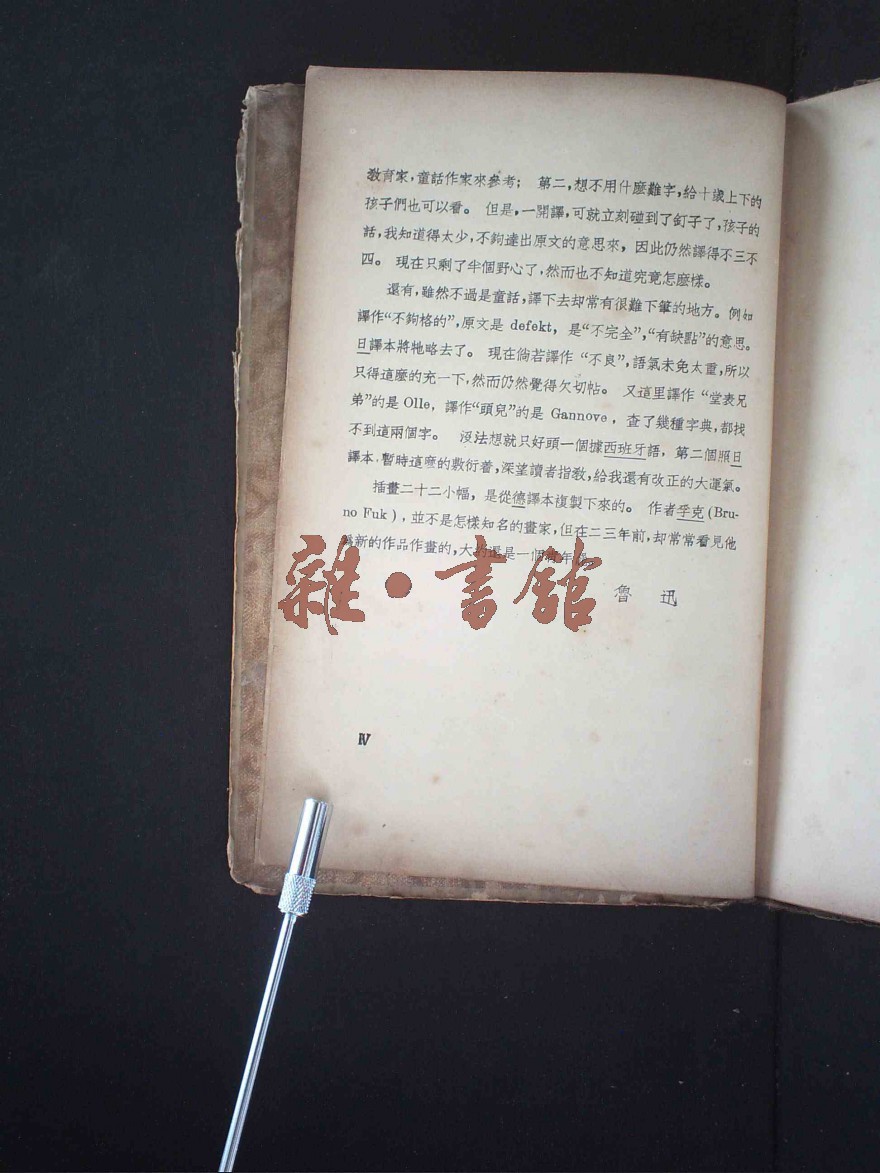 教育家，童話作家來參考； 第二，想不用什麽難字，給十歲上下的
孩子們也可以看。 但是，一開譯，可就立刻碰到了釘子了，孩子的
話，我知道得太少，不夠達出原文的意思來， 因此仍然譯得不三不
四。 現在只剩了半個野心了，然而也不知道究竟怎麽樣。
還有，雖然不過是童話，譯下去却常有很難下筆的地方。例如
譯作“不夠格的”，原文是 defekt， 是“不完全”，“有缺點”的意思。
日譯本將牠略去了。 現在倘若譯作 “不良”，語氣未免太重，所以
只得這麽的充一下，然而仍然覺得欠切帖。 又這里譯作 “堂表兄
弟”的是 Olle， 譯作“頭兒”的是 Gannove， 查了幾種字典，都找
不到這兩個字。 沒法想就只好頭一個據西班牙語， 第二個照日
譯本，暫時這麽的敷衍着，深望讀者指教，給我還有改正的大運氣。
插畫二十二小幅， 是從德譯本複製下來的。 作者孚克 (Bru-
no Fuk )，並不是怎樣知名的畫家，但在二三年前，却常常看見他
新的作品作畫的，大 是一個 年
魯 迅
雜·書館
Ⅳ